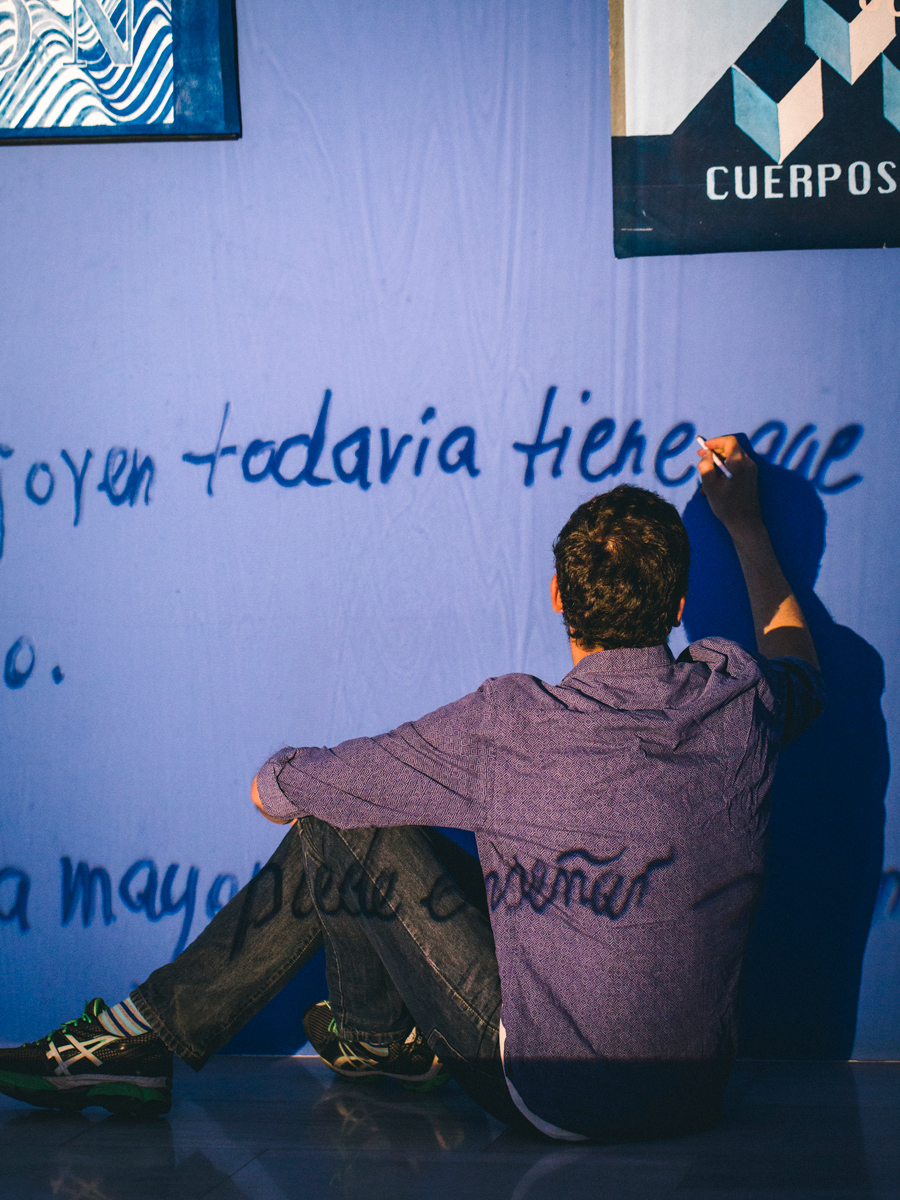 ON
CUERPOS
joven todavía tiene que
o.
a mayor puede enseñar